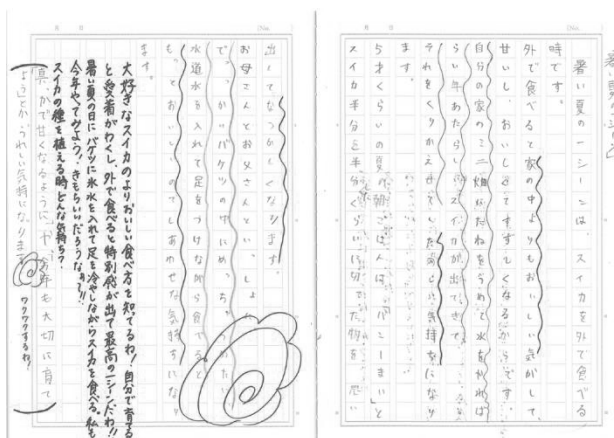 暑い夏の一シーン
暑い夏の一シーンは、スイカを外で食べる
時です。
外で食べると家の中よりもおいしい気がして、
甘いし、おいしくてすずしくなるからです。
自分の家のミニ畑にたねをうめて水をやれば
らい年あたらしいスイカが出てきて、
それをくりかえせて
気持ちになり
ます。
5才くらいの夏の朝ごはんは、
スイカ半分を半分くらいに切った物を
出してなつかしくなります。
お母さんとお父さんといっしょ
で、
バケツの中に
水道水を入れて足をつけながら食べると
とてもおいしいのでしあわせな気持ちにな
ます。
大好きなスイカのよりおいしい食べ方を知ってるわ!自分で育てる
と愛着がわくし、外で食べると特別感が出て最高の一シーンだわ!!
暑い夏の日にバケツに氷水を入れて足を冷やしながらスイカを食べる。私も
今年やってみよう!きもちいいだろうなぁ!!
スイカの種を植える時どんな気持ち?
甘くなるように
今年も大切に育て
ようとか、うれしい気持ちになります
ワクワクするわ!